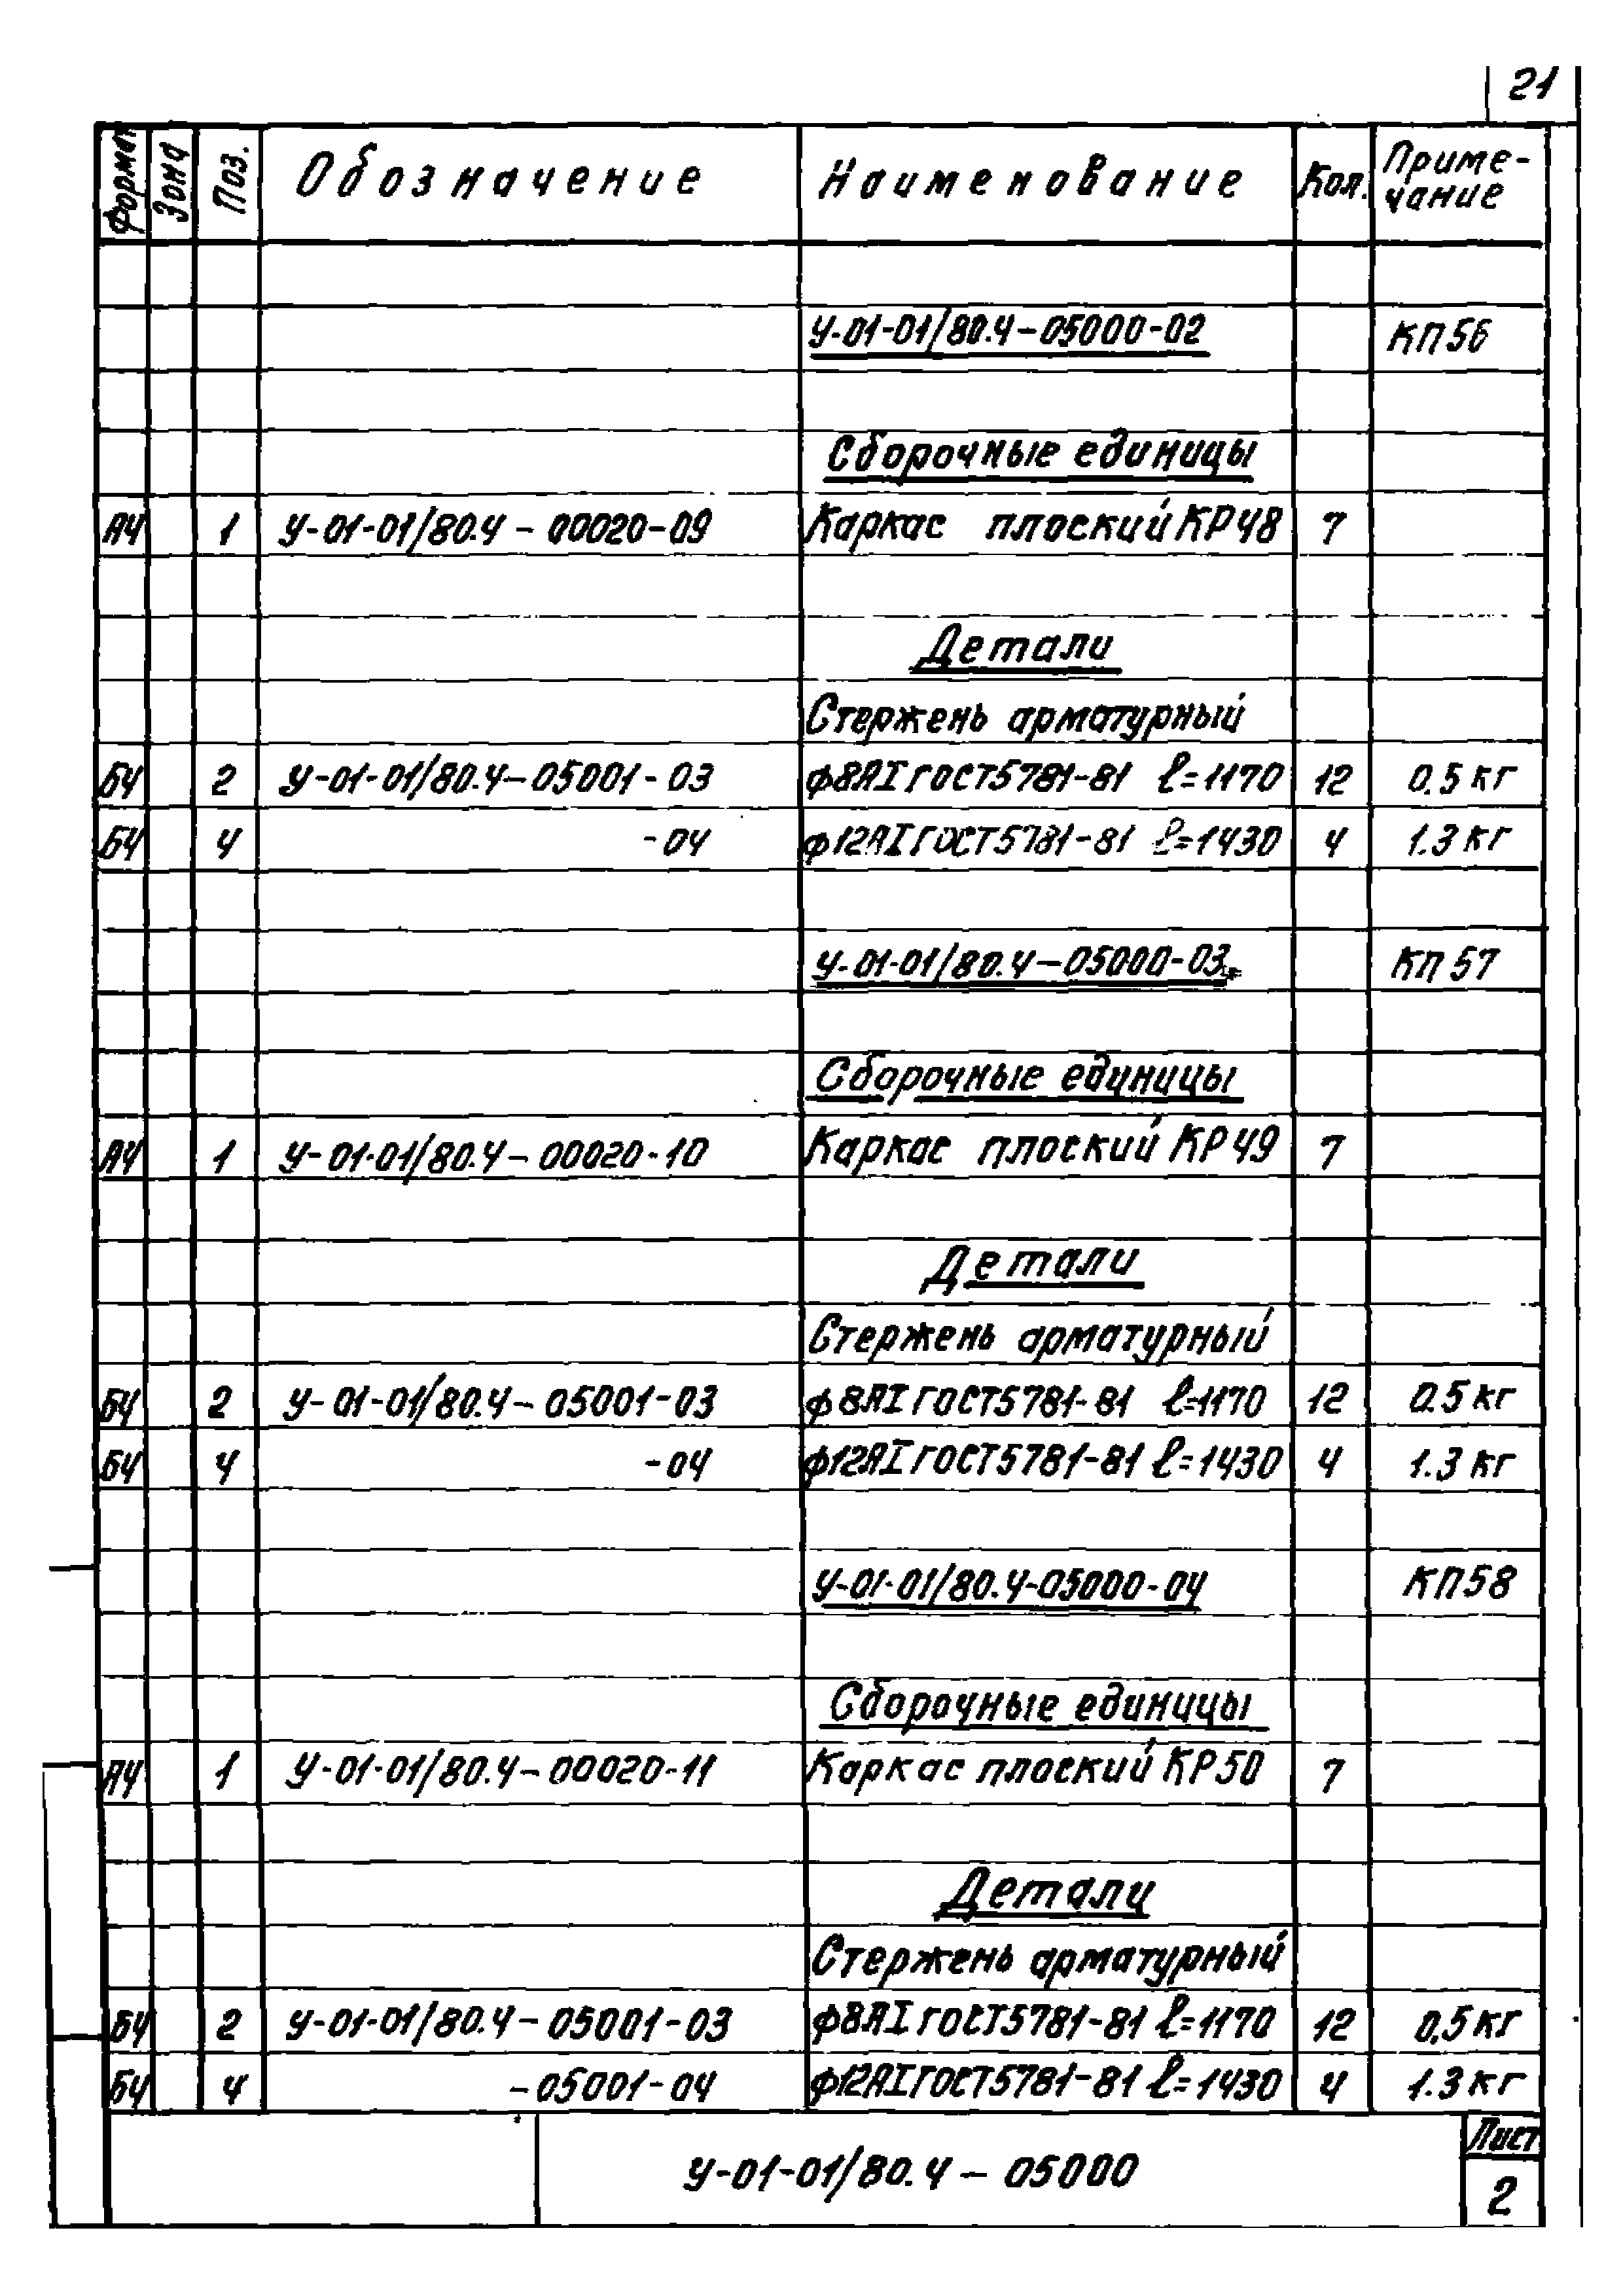 21
Формат Зона Поз. Обозначение Наименование Кол. Примечание
У-01-01/80.4-05000-02 КП56
Сборочные единицы
А4 1 У-01-01/80.4-00020-09 Каркас плоский КР48 7
Детали
Стержень арматурный
БЧ 2 У-01-01/80.4-05001-03 ф8АI ГОСТ5781-81 ℓ=1170 12 0.5 кг
БЧ 4 -04 ф12АI ГОСТ5781-81 ℓ=1430 4 1.3 кг
У-01-01/80.4-05000-03 КП57
Сборочные единицы
А4 1 У-01-01/80.4-00020-10 Каркас плоский КР49 7
Детали
Стержень арматурный
БЧ 2 У-01-01/80.4-05001-03 ф8АI ГОСТ5781-81 ℓ=1170 12 0.5 кг
БЧ 4 -04 ф12АI ГОСТ5781-81 ℓ=1430 4 1.3 кг
У-01-01/80.4-05000-04 КП58
Сборочные единицы
А4 1 У-01-01/80.4-00020-11 Каркас плоский КР50 7
Детали
Стержень арматурный
БЧ 2 У-01-01/80.4-05001-03 ф8АI ГОСТ5781-81 ℓ=1170 12 0,5 кг
БЧ 4 -05001-04 ф12АI ГОСТ5781-81 ℓ=1430 4 1.3 кг
У-01-01/80.4-05000
Лист
2